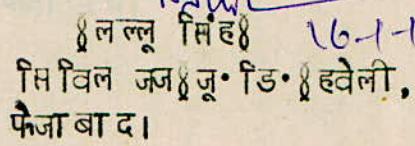 §लल्लू सिंह§
सिविल जज§जू॰ डि॰§हवेली,
फैजाबाद।